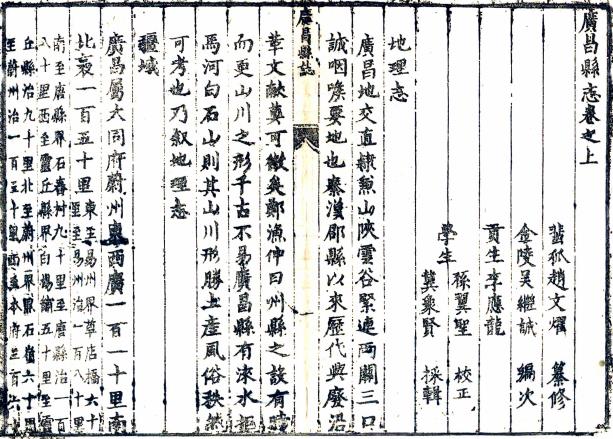 廣昌縣志卷之上
蜚狐趙文燿 纂修
金陵吳繼誠 編次
貢生李應龍
學生
孫翼聖 校正
冀象賢 採輯
地理志
廣昌地交直隸魚山陝雲谷緊連西關三口
誠咽喉要地也秦漢郡縣以來歷代興廢沿
革文獻莫可徵矣鄭漁仲曰州縣之設有時
廣昌縣誌
而更山川之形千古不易廣昌縣有淶水
焉河白石山則其山川形勝土產風俗秩然
可考也乃叙地理志
疆域
廣昌屬大同府蔚州東西廣一百一十里南
北袤一百五十里
東至易州界草店橋六十
里至易州治一百八十里
南至唐縣界石春村九十里至唐縣治一百
八十里西至靈丘縣界白楊鋪五十里至靈
丘縣治九十里北至蔚州界黑石嶺六十里
至蔚州治一百三十里西至本府三百六